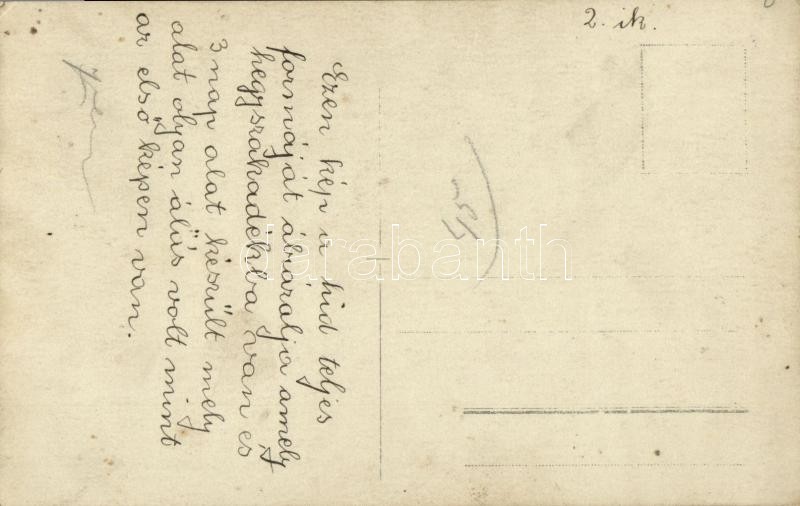 2. ik.
Ezen kép a hid teljes
formáját ábrázolja amely
hegyszakadékba van es
3 nap alat készült mely
alat olyan álás volt mint
az első képen van.
darabanth